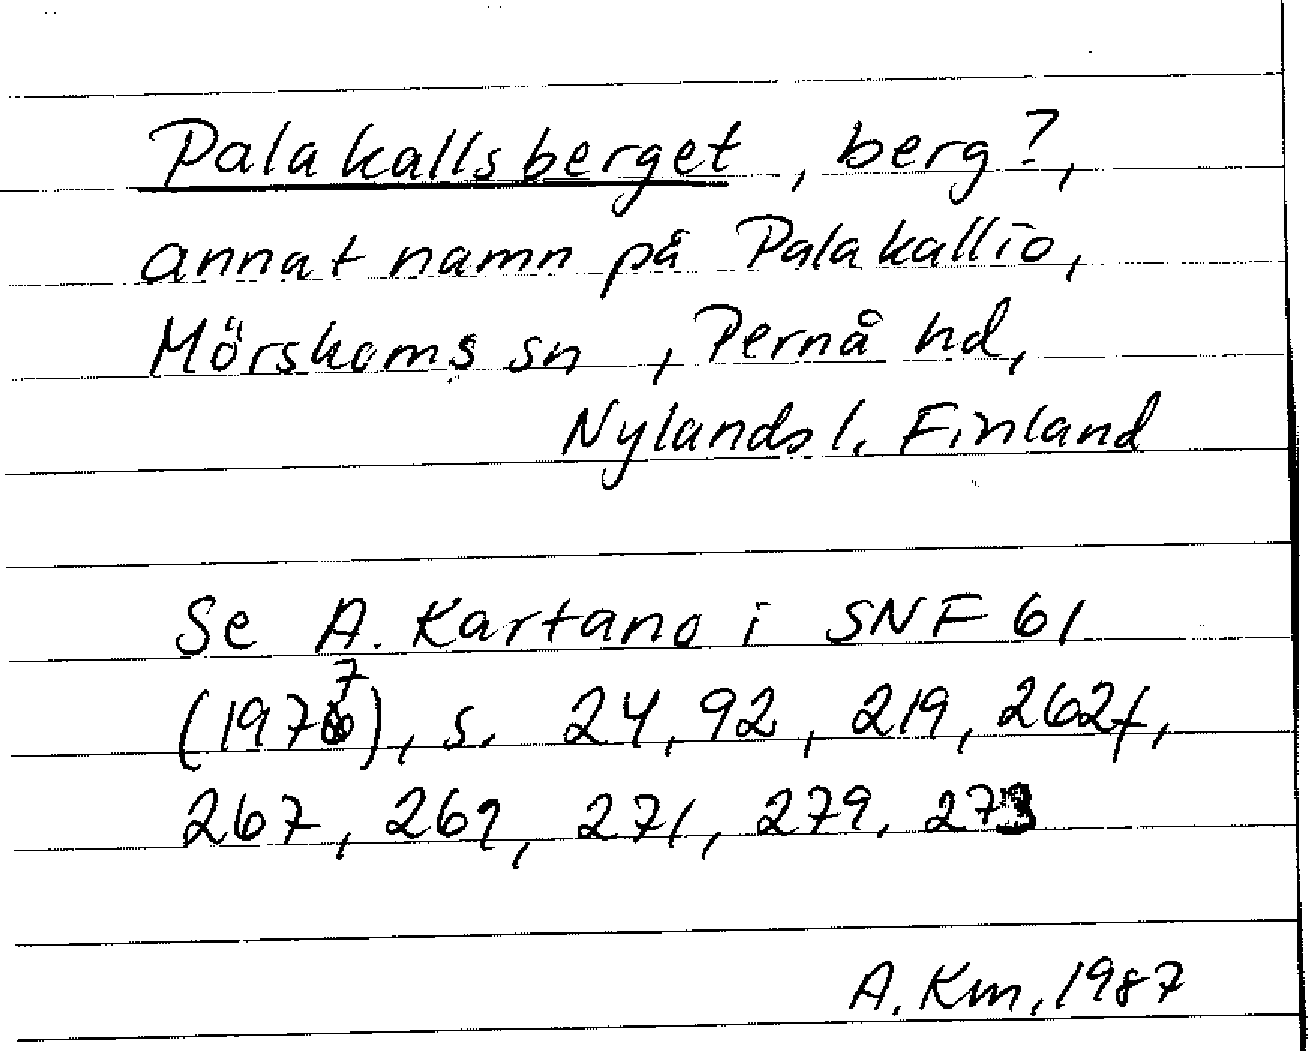 Palakallsberget, berg?,
annat namn på Palakallio,
Mörskoms sn, Pernå hd,
Nylands l. Finland
Se A. Kartano i SNF 61
(1977), s. 24, 92, 219, 262f,
267, 269, 271, 279, 273
A. Km, 1987